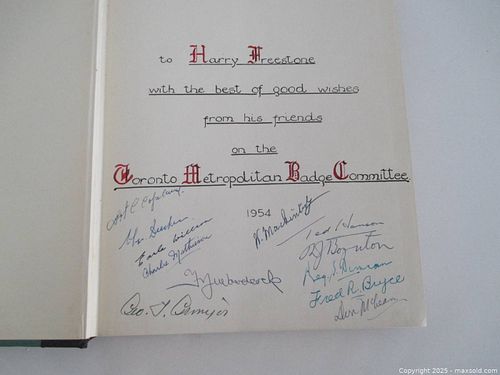 to Harry Freestone
with the best of good wishes
from his friends
on the
Toronto Metropolitan Badge Committee
1954
Earle Willson
Charlie Matheson
Ted Hanson
RJ Boynton
Reg. S. Duncan
Fred R. Bryce
Don McLean
Geo. T.
Copyright 2025 - maxsold.com